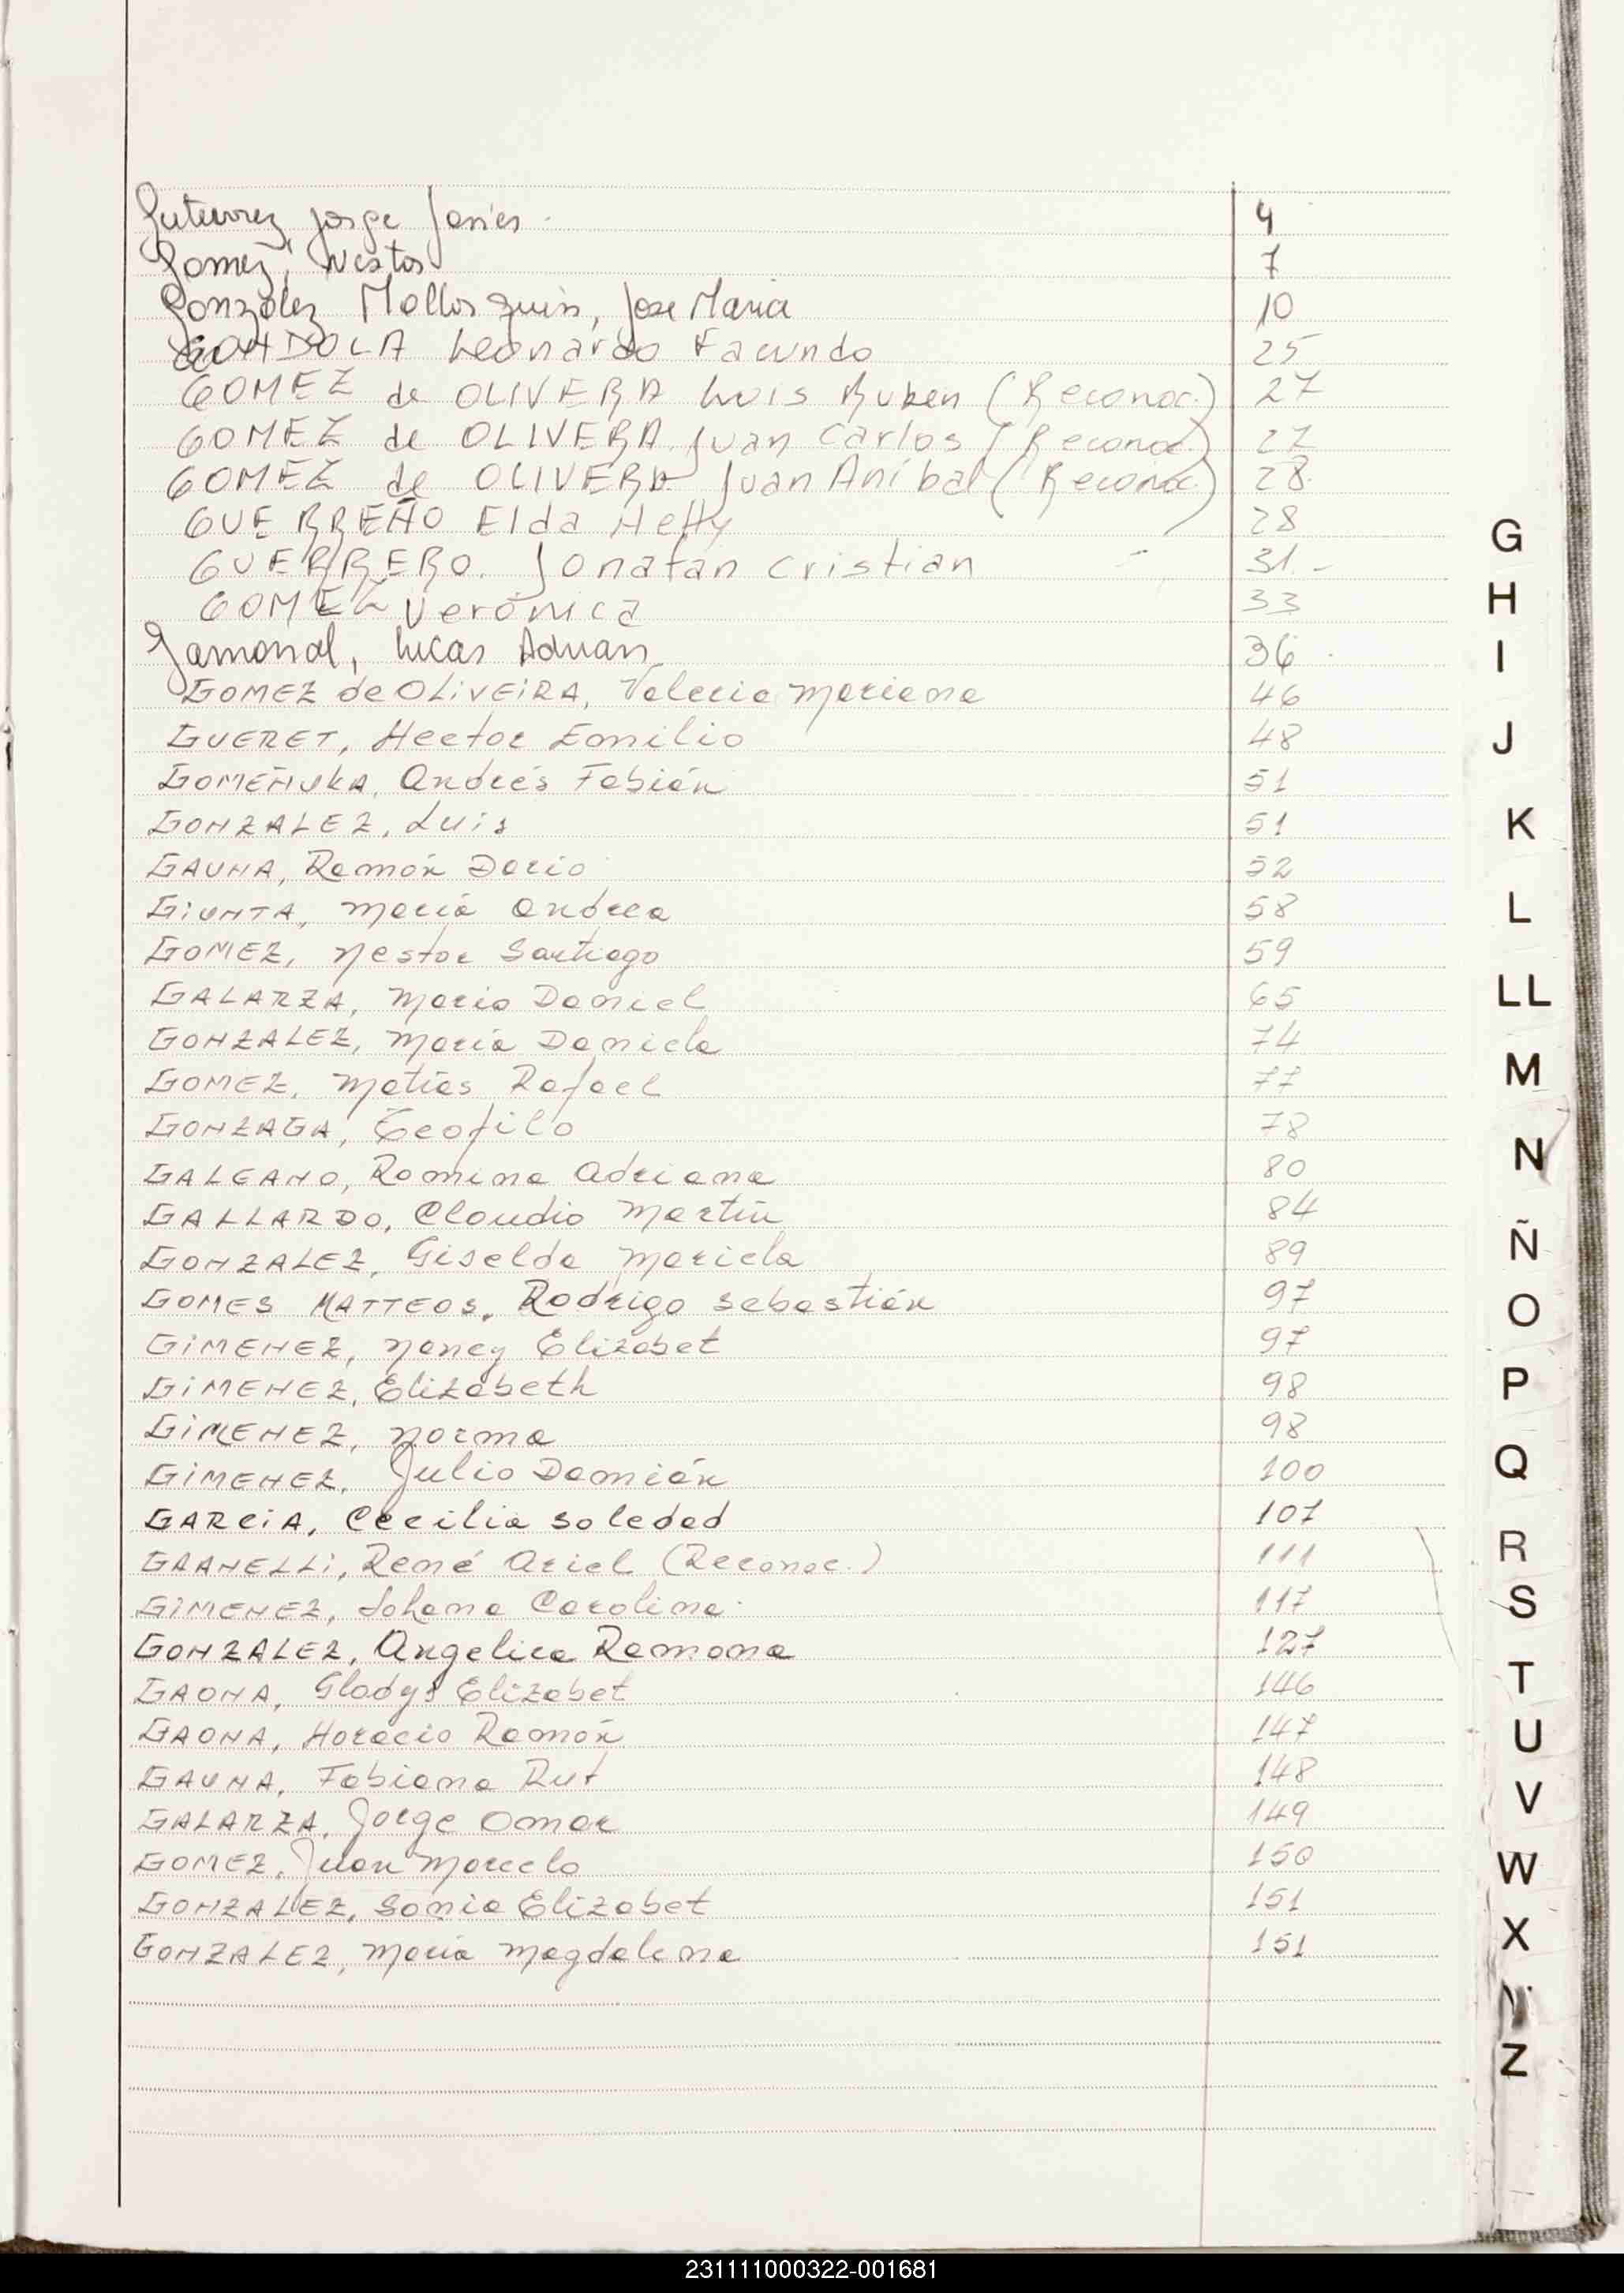 Gutierrez Jorge Javier 4
Gomez, Nestor 7
Gonzalez Mallorquin, Jose Maria 10
GONDOLA Leonardo Facundo 25
GOMEZ de OLIVERA Luis Ruben (Reconoc.) 27
GOMEZ de OLIVERA Juan Carlos (Reconoc.) 27
GOMEZ de OLIVERA Juan Aníbal (Reconoc.) 28
GUERREÑO Elda Hetty 28
GUERRERO. Jonatan Cristian 31.-
GOMEZ Verónica 33
Gamonal, Lucas Adrian 36
GOMEZ de OLIVEIRA, Valeria Mariana 46
GUERET, Hector Emilio 48
GOMEÑUKA, Andrés Fabián 51
GONZALEZ, Luis 51
GAUNA, Ramón Dario 52
GIUNTA, María Andrea 58
GOMEZ, Nestor Santiago 59
GALARZA, Mario Daniel 65
GONZALEZ, María Daniela 74
GOMEZ, Matías Rafael 77
GONZAGA, Teofilo 78
GALEANO, Romina Adriana 80
GALLARDO, Claudio Martín 84
GONZALEZ, Giselda Mariela 89
GOMES MATTEOS, Rodrigo Sebastián 97
GIMENEZ, Nancy Elizabet 97
GIMENEZ, Elizabeth 98
GIMENEZ, Norma 98
GIMENEZ, Julio Damián 100
GARCIA, Cecilia Soledad 107
GRANELLI, René Ariel (Reconoc.) 111
GIMENEZ, Johana Carolina 117
GONZALEZ, Angelica Ramona 127
GAONA, Gladys Elizabet 146
GAONA, Horacio Ramón 147
GAUNA, Fabiana Rut 148
GALARZA, Jorge Omar 149
GOMEZ, Juan Marcelo 150
GONZALEZ, Sonia Elizabet 151
GONZALEZ, María Magdalena 151
G
H
I
J
K
L
LL
M
N
Ñ
O
P
Q
R
S
T
U
V
W
X
Z
231111000322-001681